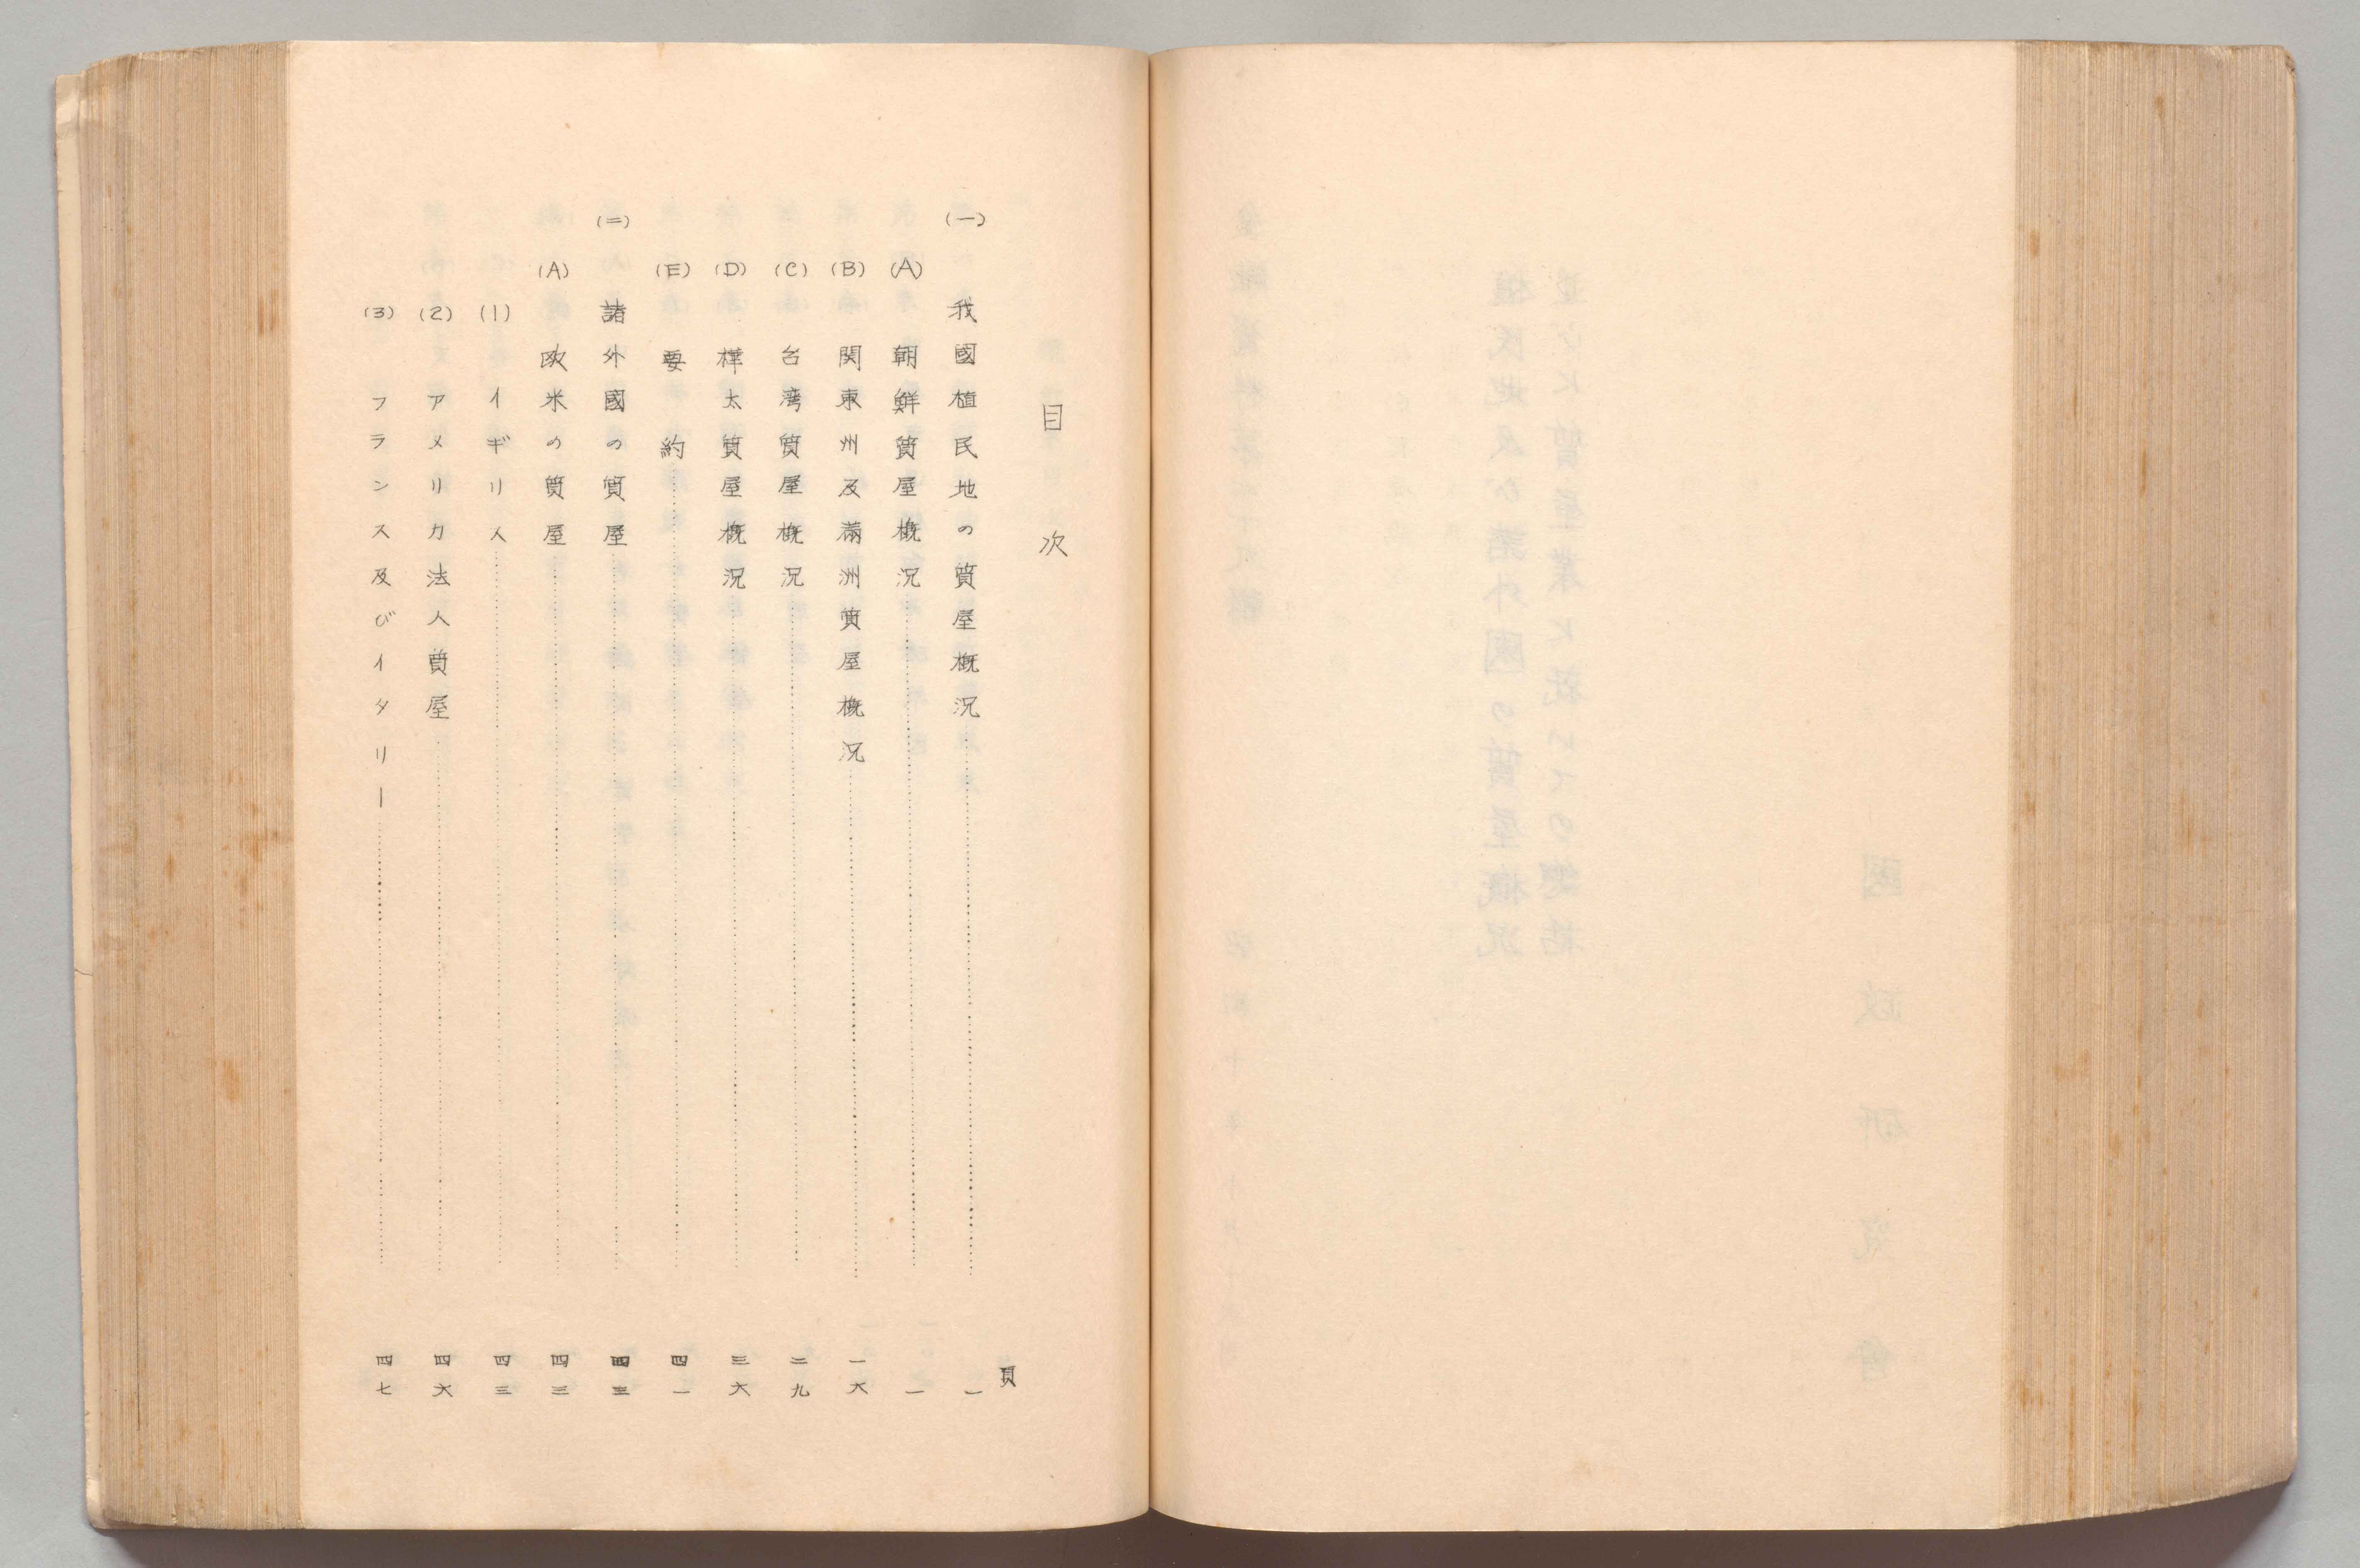 目次
頁
(一) 我國植民地の質屋概況 一
(A) 朝鮮質屋概況 一
(B) 関東州及満洲質屋概況 一六
(C) 台湾質屋概況 二九
(D) 樺太質屋概況 三六
(E) 要約 四一
(二) 諸外國の質屋 四三
(A) 欧米の質屋 四三
(1) イギリス 四三
(2) アメリカ法人質屋 四六
(3) フランス及びイタリー 四七